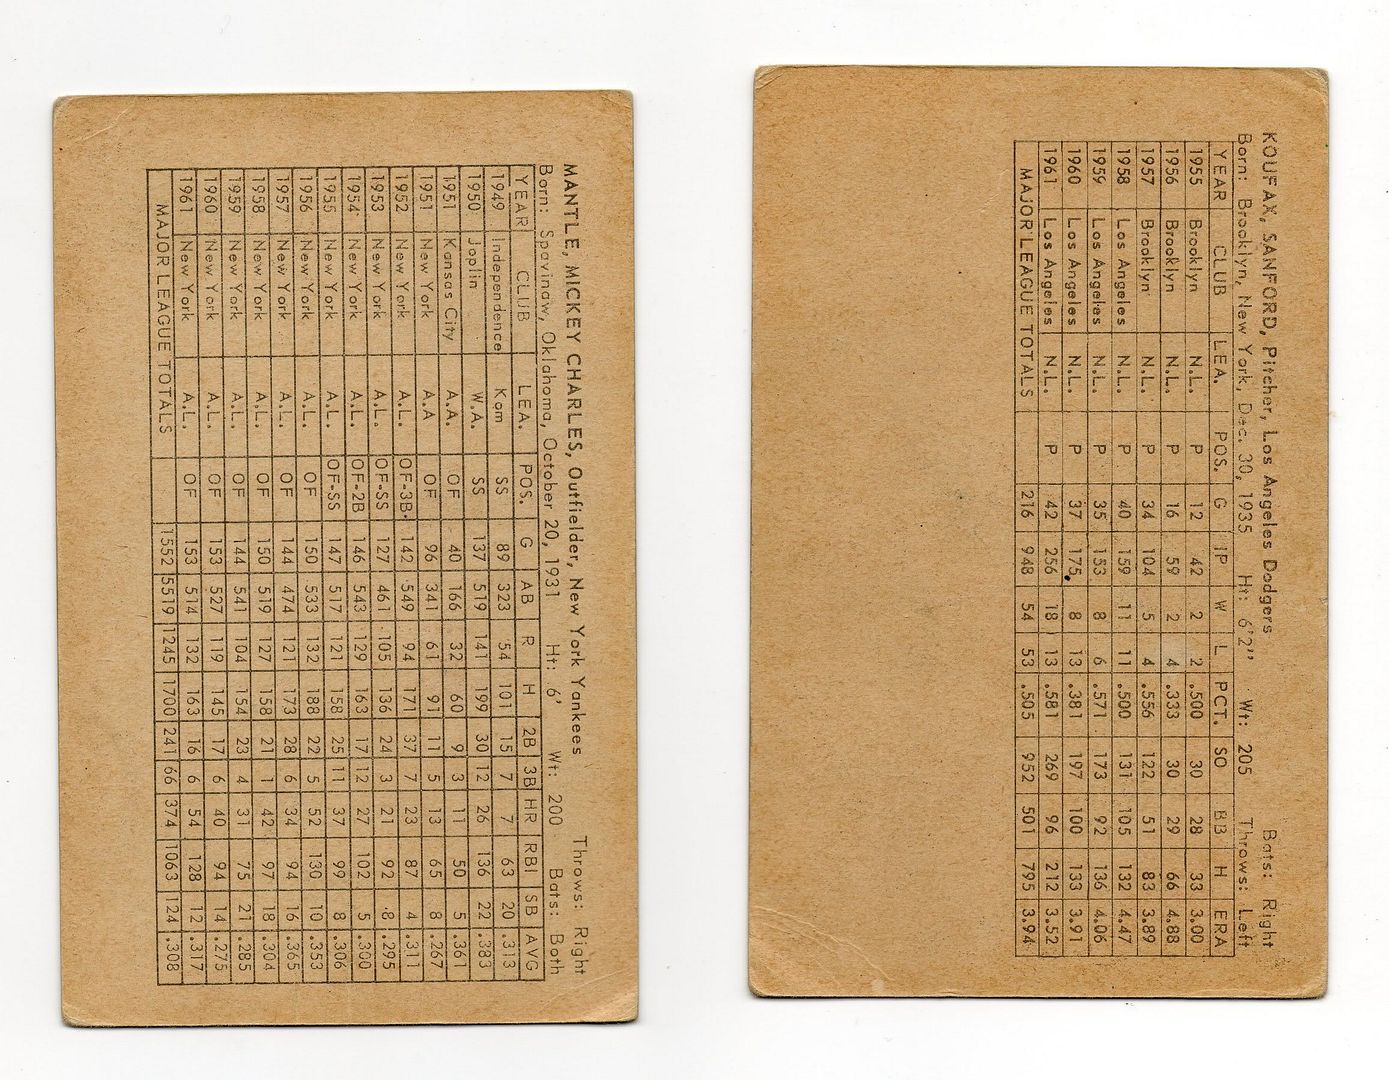 MANTLE, MICKEY CHARLES, Outfielder, New York Yankees Throws: Right
Born: Spavinaw, Oklahoma, October 20, 1931 Ht: 6' Wt: 200 Bats: Both
YEAR CLUB LEA. POS. G AB R H 2B 3B HR RBI SB AVG
1949 Independence Kom SS 89 323 54 101 15 7 7 63 20 .313
1950 Joplin W.A. SS 137 519 141 199 30 12 26 136 22 .383
1951 Kansas City A.A. OF 40 166 32 60 9 3 11 50 5 .361
1951 New York A.A OF 96 341 61 91 11 5 13 65 8 .267
1952 New York A.L. OF-3B. 142 549 94 171 37 7 23 87 4 .311
1953 New York A.L. OF-SS 127 461 105 136 24 3 21 92 8 .295
1954 New York A.L. OF-2B 146 543 129 163 17 12 27 102 5 .300
1955 New York A.L. OF-SS 147 517 121 158 25 11 37 99 8 .306
1956 New York A.L. OF 150 533 132 188 22 5 52 130 10 .353
1957 New York A.L. OF 144 474 121 173 28 6 34 94 16 .365
1958 New York A.L. OF 150 519 127 158 21 1 42 97 18 .304
1959 New York A.L. OF 144 541 104 154 23 4 31 75 21 .285
1960 New York A.L. OF 153 527 119 145 17 6 40 94 14 .275
1961 New York A.L. OF 153 514 132 163 16 6 54 128 12 .317
MAJOR LEAGUE TOTALS 1552 5519 1245 1700 241 66 374 1063 124 .308
KOUFAX, SANFORD, Pitcher, Los Angeles Dodgers Bats: Right
Born: Brooklyn, New York, Dec. 30, 1935 Ht: 6'2" Wt: 205 Throws: Left
YEAR CLUB LEA. POS. G IP W L PCT. SO BB H ERA
1955 Brooklyn N.L. P 12 42 2 2 .500 30 28 33 3.00
1956 Brooklyn N.L. P 16 59 2 4 .333 30 29 66 4.88
1957 Brooklyn N.L. P 34 104 5 4 .556 122 51 83 3.89
1958 Los Angeles N.L. P 40 159 11 11 .500 131 105 132 4.47
1959 Los Angeles N.L. P 35 153 8 6 .571 173 92 136 4.06
1960 Los Angeles N.L. P 37 175 8 13 .381 197 100 133 3.91
1961 Los Angeles N.L. P 42 256 18 13 .581 269 96 212 3.52
MAJOR LEAGUE TOTALS 216 948 54 53 .505 952 501 795 3.94